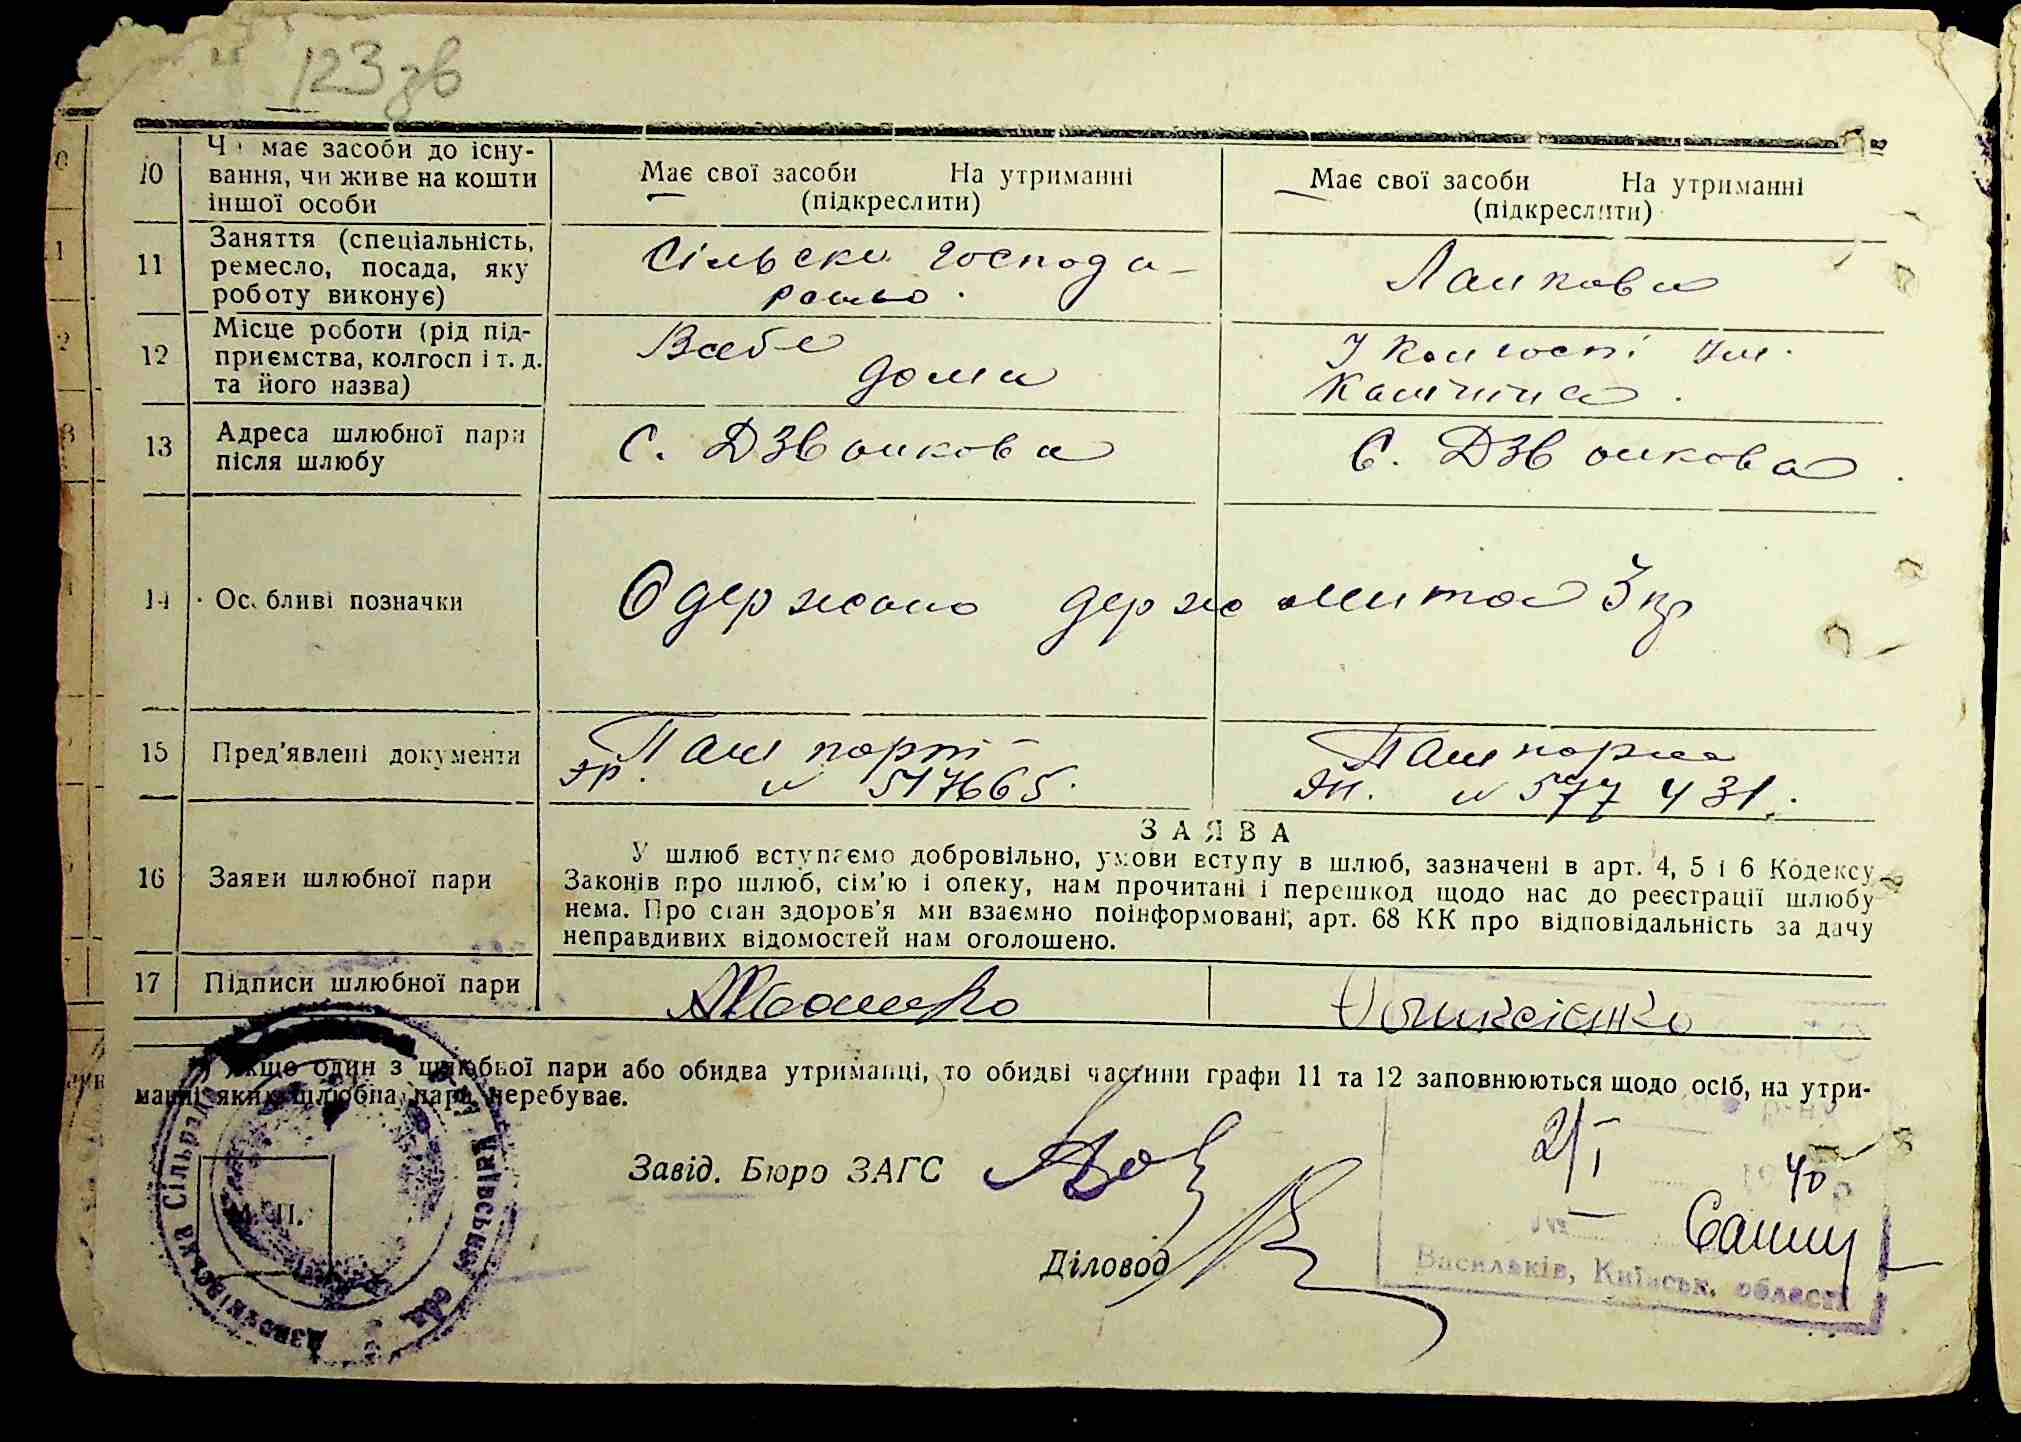 123 зв
10
Чи має засоби до існу-
вання, чи живе на кошти
іншої особи
Має свої засоби На утриманні
(підкреслити)
Має свої засоби На утриманні
(підкреслити)
11
Заняття (спеціальність,
ремесло, посада, яку
роботу виконує)
Сільске господа-
Ланкова
12
Місце роботи (рід під-
приємства, колгосп і т. д.
та його назва)
Вебе
дома
У колгоспі їм.
Калініна.
13
Адреса шлюбної пари
після шлюбу
С. Дзвонкова
С. Дзвонкова
14
Особливі позначки
Одержано держ мита 3 кр
15
Пред'явлені документи
Пашпорт
№ 517665.
Пашпорта
№ 577431.
16
Заяви шлюбної пари
ЗАЯВА
У шлюб вступаємо добровільно, умови вступу в шлюб, зазначені в арт. 4, 5 і 6 Кодексу
Законів про шлюб, сім'ю і опеку, нам прочитані і перешкод щодо нас до реєстрації шлюбу
нема. Про стан здоров'я ми взаємно поінформовані, арт. 68 КК про відповідальність за дачу
неправдивих відомостей нам оголошено.
17
Підписи шлюбної пари
Якщо один з шлюбної пари або обидва утриманці, то обидві частини графи 11 та 12 заповнюються щодо осіб, на утри-
манні яких шлюбна пара перебуває.
Завід. Бюро ЗАГС
2/I
40
М. П.
Діловод
№
Васильків, Київськ. області